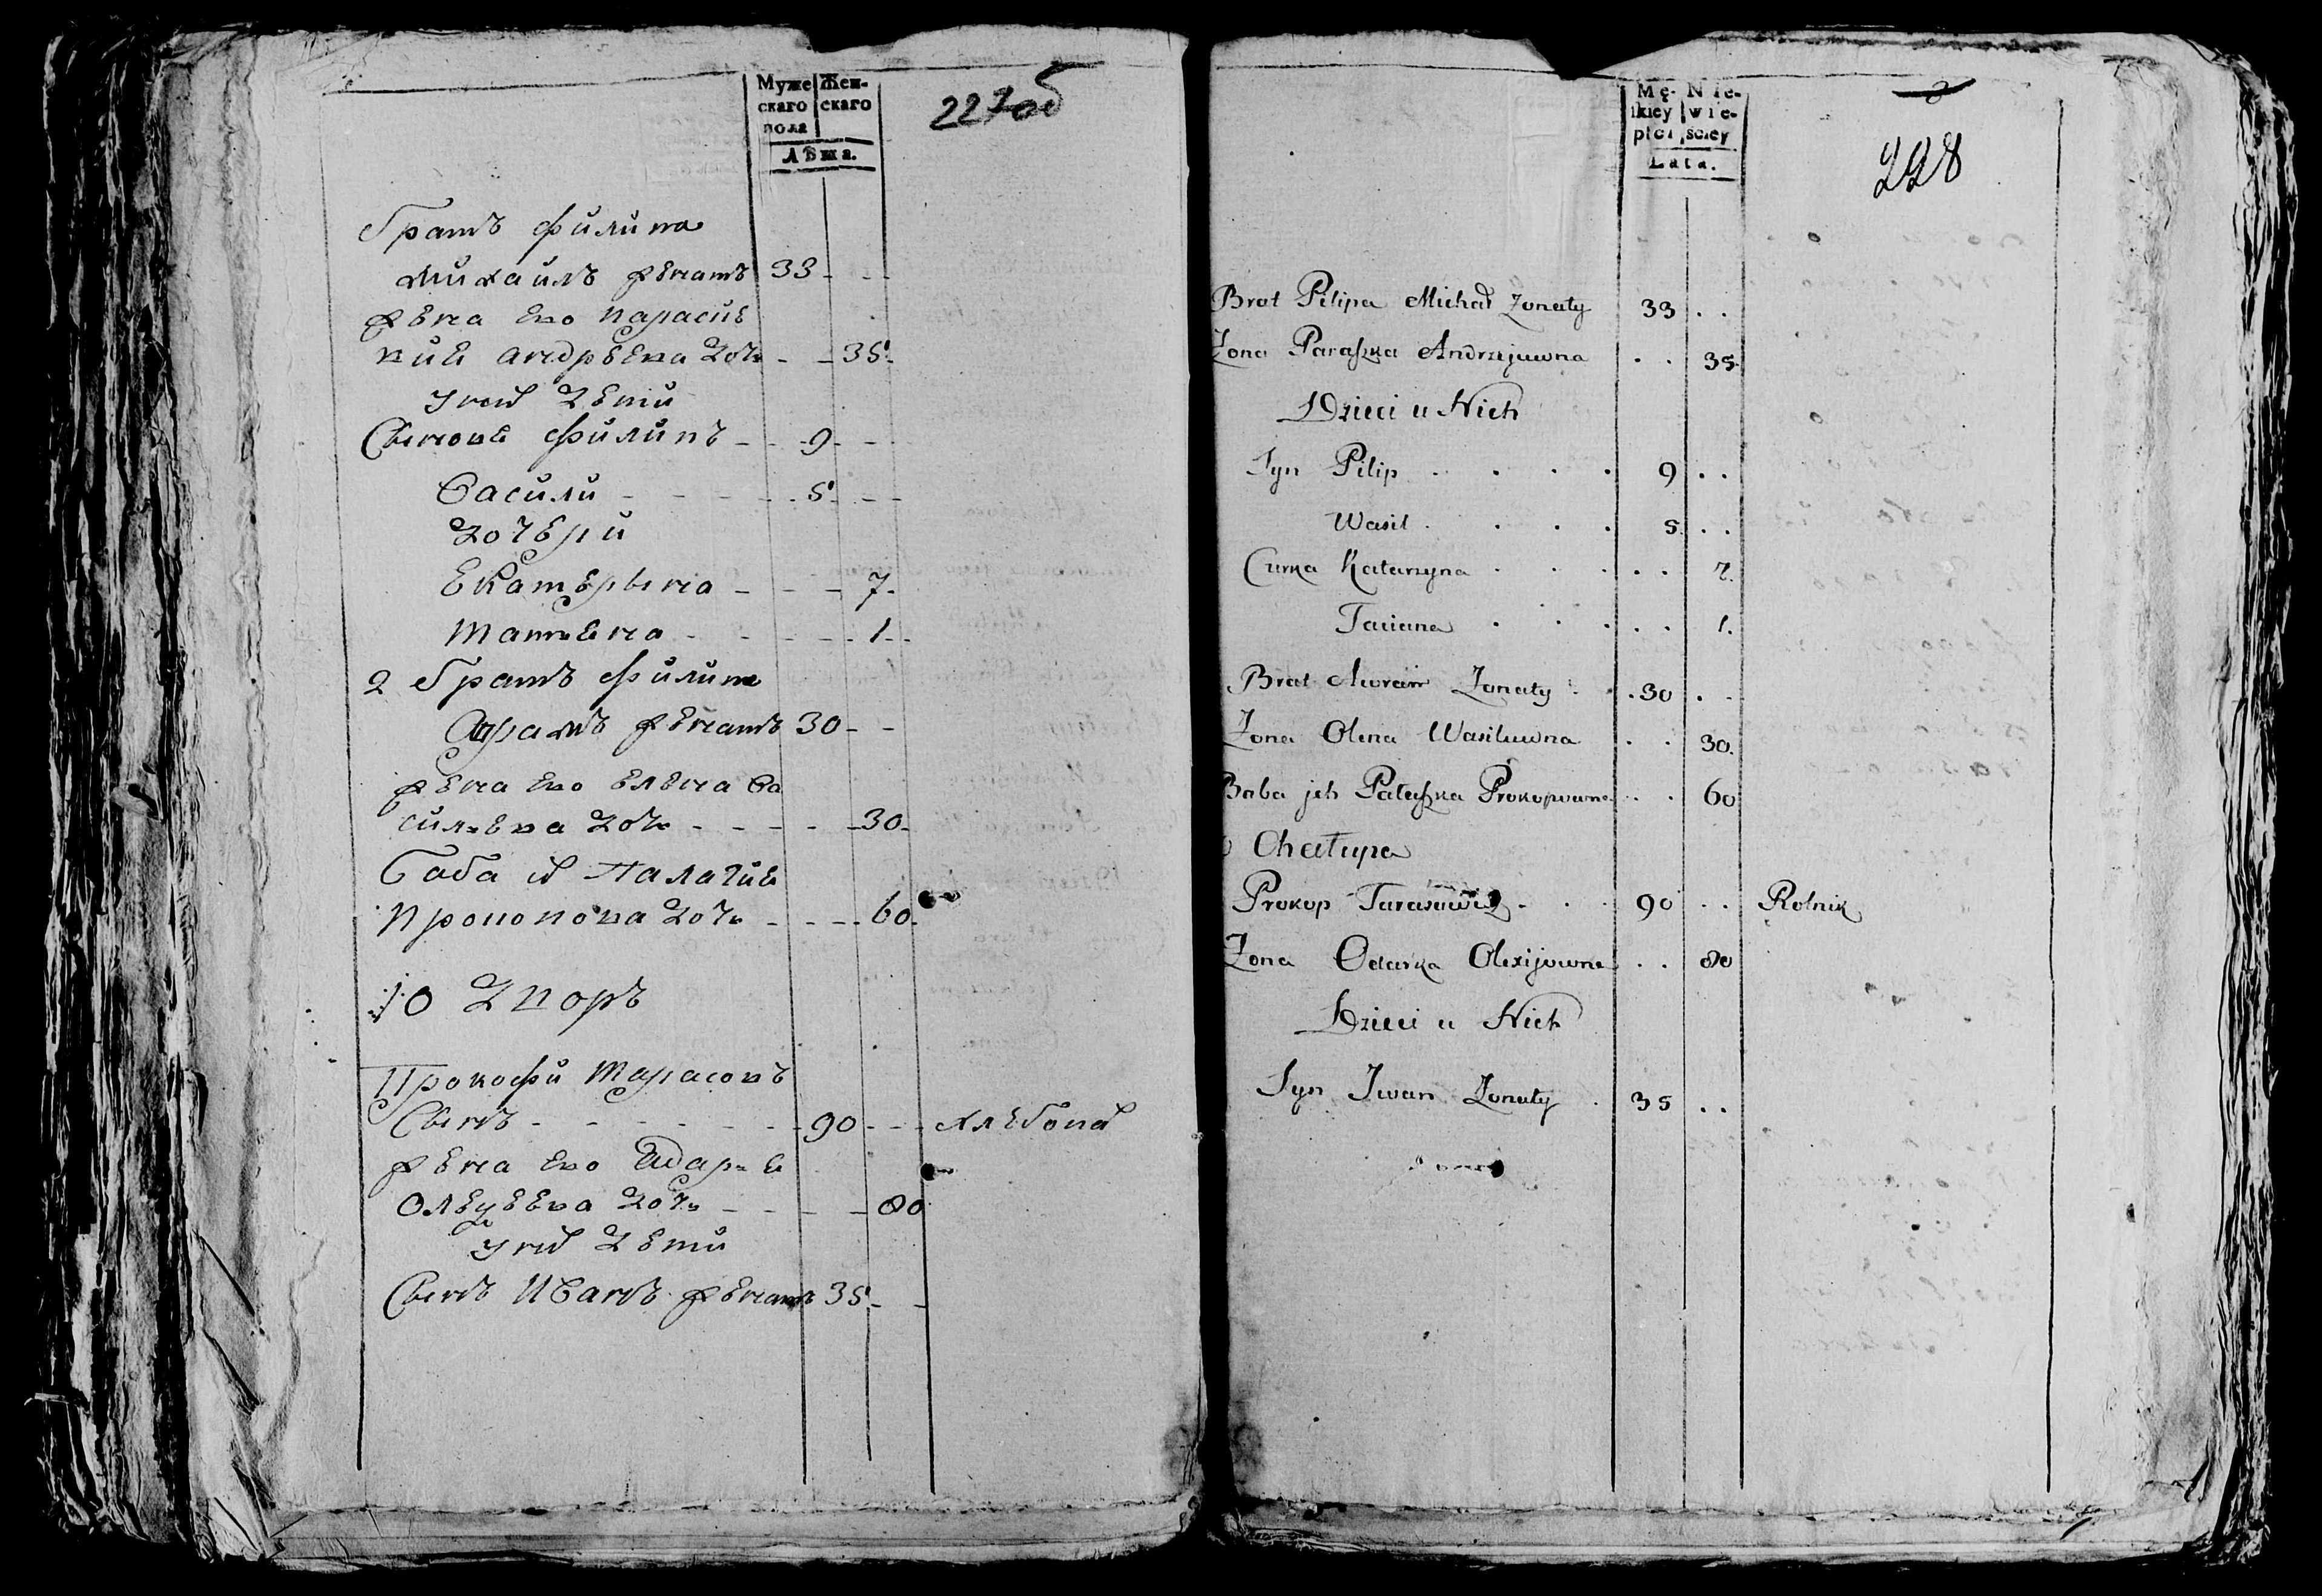 Муже Жен-
скаго скаго
пола
Лѣта.
227об
Братъ Филипа
Михаилъ женатъ 33
Жена Его Парасце
вия Андрѣева дочь 35
У них Дети
Сыновя Филипъ 9
Васили 5
Дочери
Екатерына 7
Татьяна 1
2 Братъ Филипа
Аврамъ женатъ 30
Жена Его Елена Ва
сильева дочь 30
Баба их Палагия
Прокопова дочь 60
10 Двор
Прокофи Тарасовъ
Сынъ 90 Хлебопа
Жена Его Одарья
дочь 80
У них Дети
Сынъ Иванъ женатъ 35
Mę- Nie-
skiey wie-
płci ściey
Lata.
228
Brat Pilipa Michał Żonaty 33
Żona Paraszka Andrzejuwna 35
Dzieci u Nich
Syn Pilip 9
Wasil 5
Curka Katarzyna 7
Taciana 1
Brat Awram Żonaty 30
Żona Olena Wasiluwna 30
Baba jch Pałaszka Prokopowna 60
Chałupa
Prokop Tarasowicz 90 Rolnik
Żona Odarka Olexijowna 80
Dzieci u Nich
Syn Jwan Żonaty 35